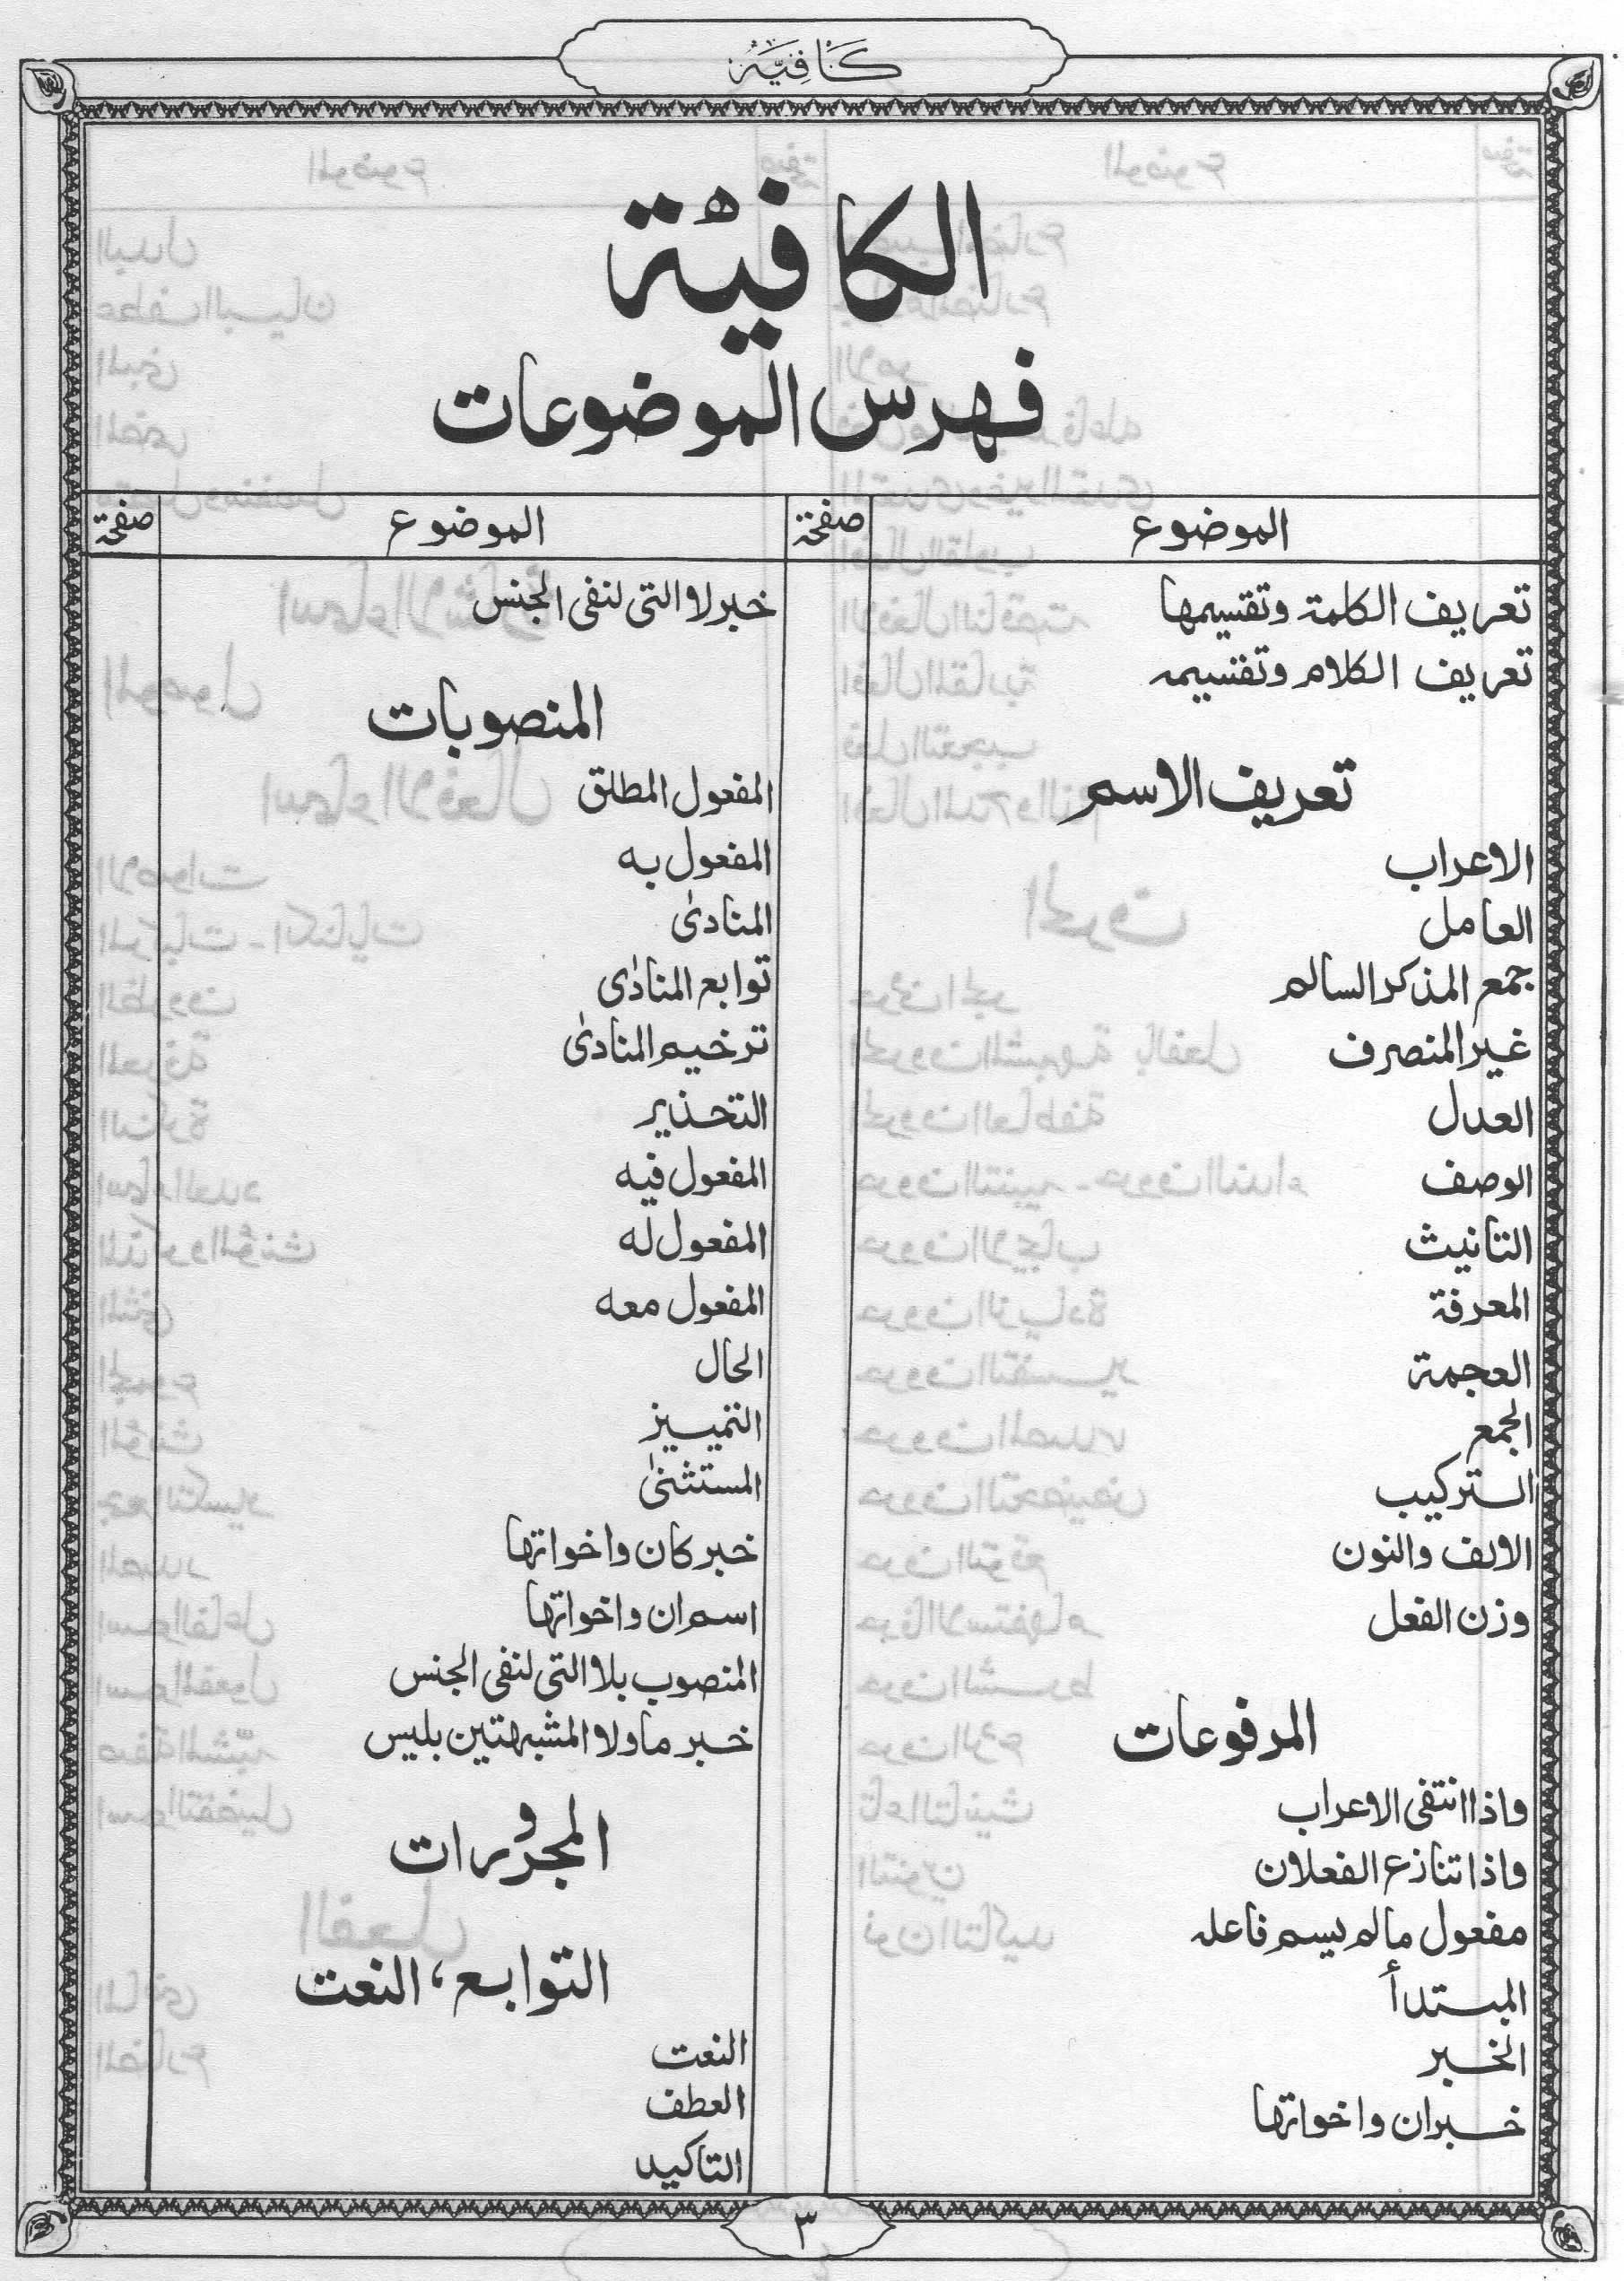 كَافِيَه
الكافية
فهرس الموضوعات
الموضوع
صفحة
تعريف الكلمة وتقسيمها
تعريف الكلام وتقسيمه
تعريف الاسم
الاعراب
العامل
جمع المذكر السالم
غير المنصرف
العدل
الوصف
التانيث
المعرفة
العجمة
الجمع
التركيب
الالف والنون
وزن الفعل
المرفوعات
واذا انتفى الاعراب
واذا تنازع الفعلان
مفعول مالم يسم فاعله
المبتدأ
الخبر
خبران واخواتها
الموضوع
صفحة
خبر لا التى لنفى الجنس
المنصوبات
المفعول المطلق
المفعول به
المنادىٰ
توابع المنادٰى
ترخيم المنادىٰ
التحذير
المفعول فيه
المفعول له
المفعول معه
الحال
التمييز
المستثنىٰ
خبر كان واخواتها
اسم ان واخواتها
المنصوب بلا التى لنفى الجنس
خبر ما ولا المشبهتين بليس
المجرورات
التوابع، النعت
النعت
العطف
التاكيد
٣